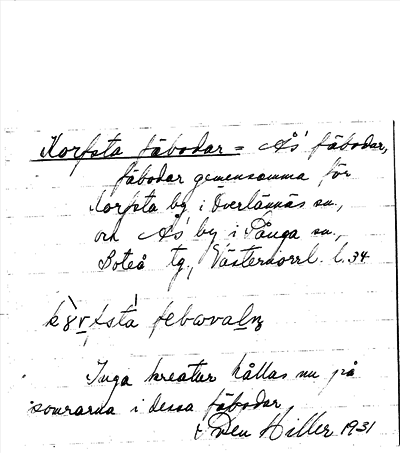 Korfsta fäbodar = Ås' fäbodar,
fäbodar gemensamma för
Korfsta by i Överlännäs sn,
och Ås' by i Sånga sn,
Boteå tg, Västernorrl. l. 34
fäbodar
Inga kreatur hållas nu på
somrarna i dessa fäbodar
Hiller 1931